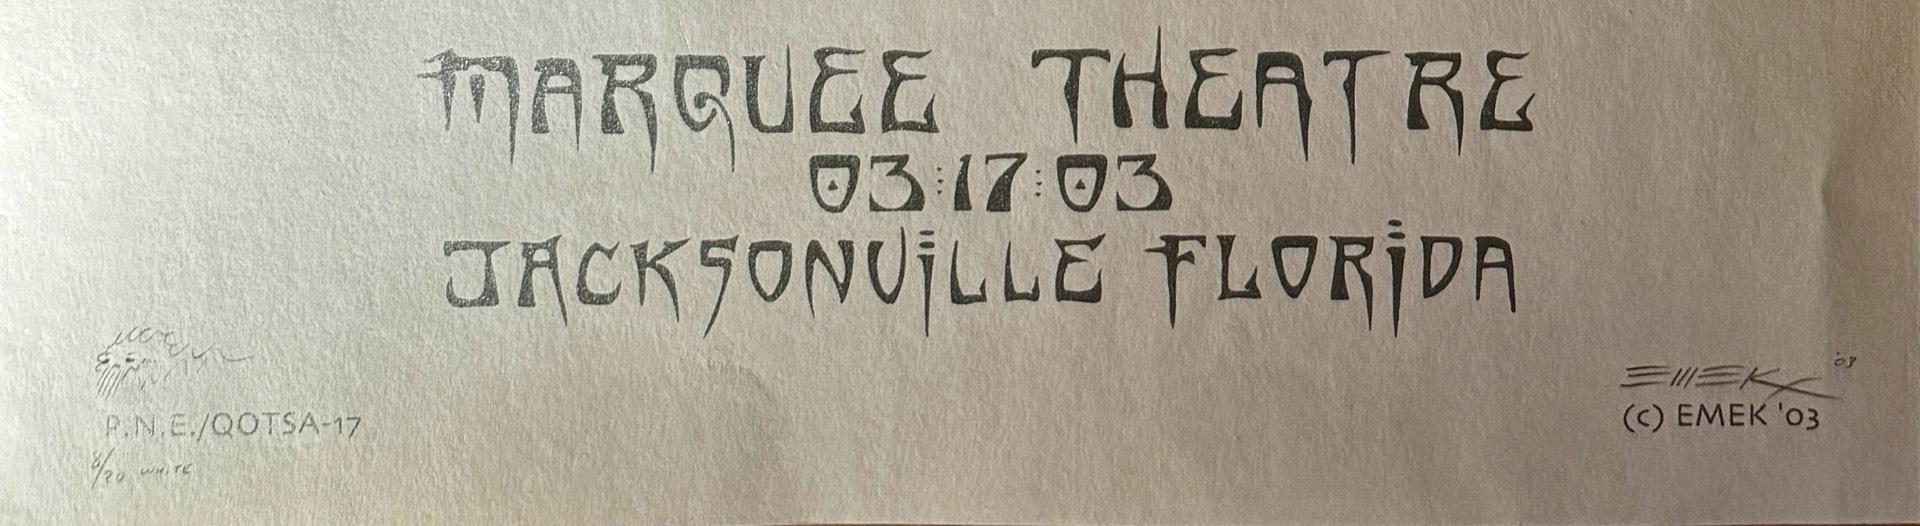 MARQUEE THEATRE
03:17:03
JACKSONViLLE FLORiDA
EMEK '03
P.N.E./QOTSA-17
(C) EMEK '03
8/20 WHITE